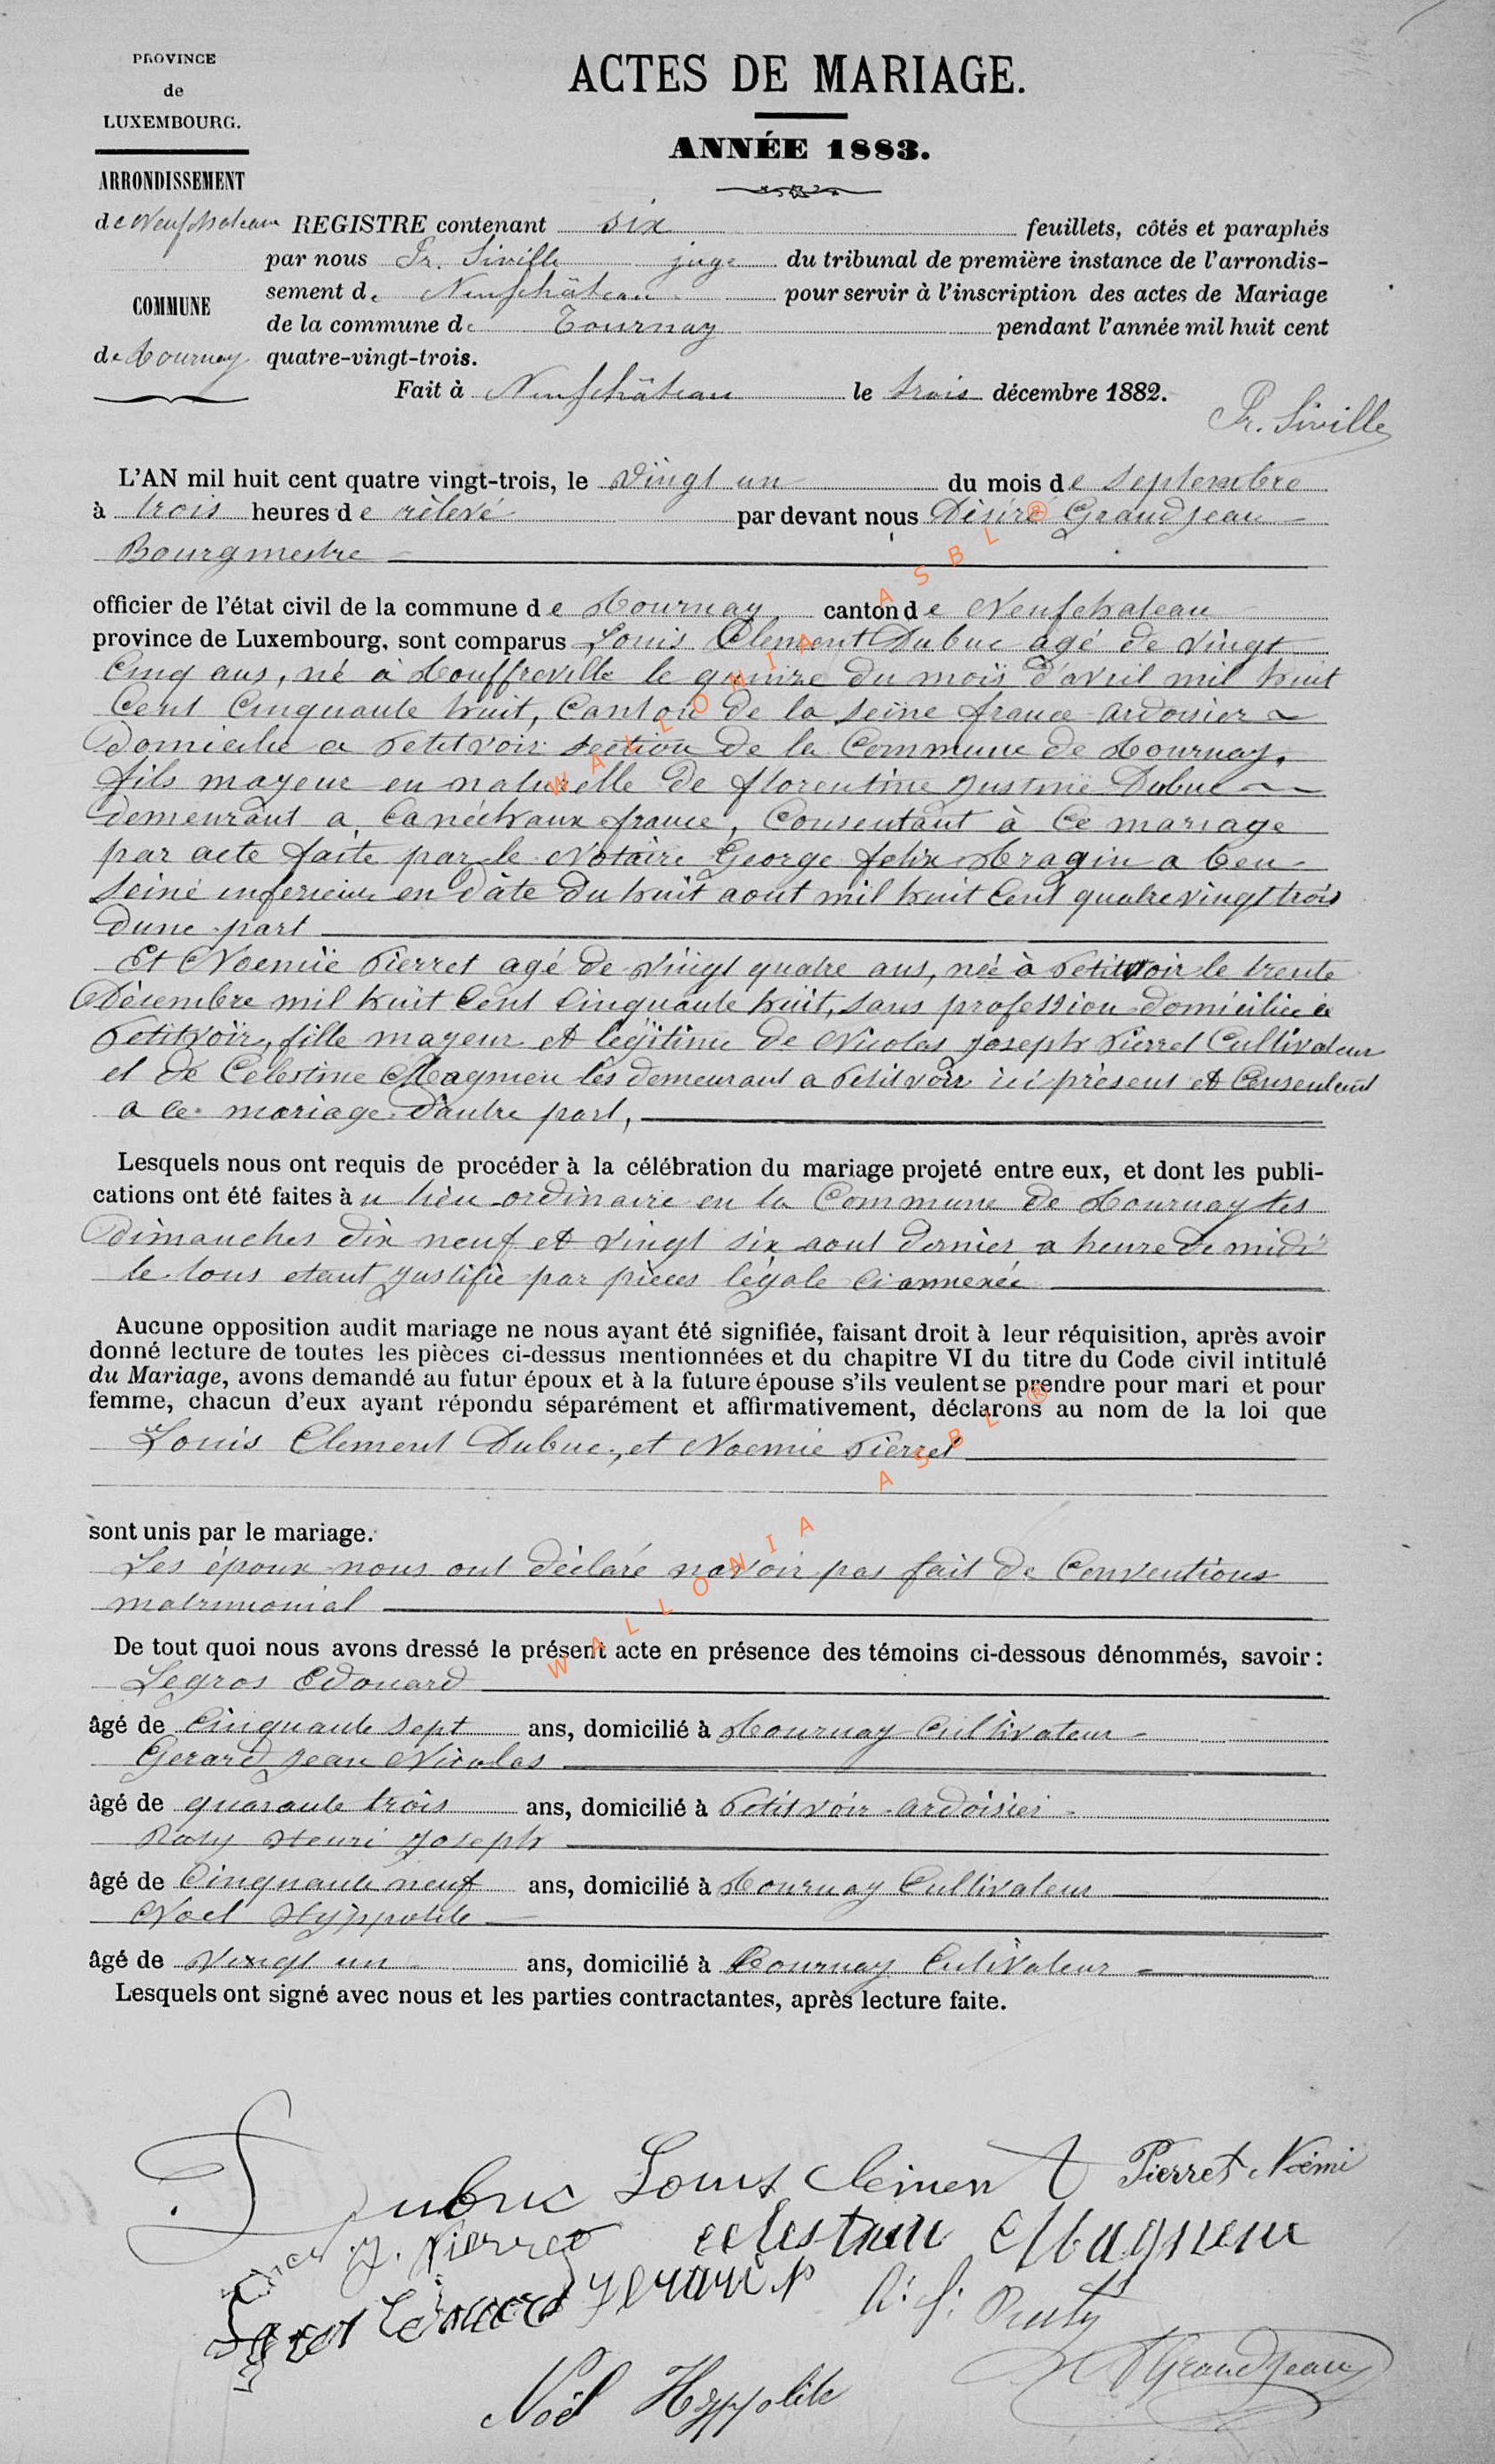 PROVINCE
de
LUXEMBOURG.
ARRONDISSEMENT
de Neufchateau
COMMUNE
de Tournay
ACTES DE MARIAGE.
ANNÉE 1883.
REGISTRE contenant six feuillets, côtés et paraphés
par nous Pr. Siville juge du tribunal de première instance de l'arrondis-
sement de Neufchâteau pour servir à l'inscription des actes de Mariage
de la commune de Tournay pendant l'année mil huit cent
quatre-vingt-trois.
Fait à Neufchâteau le trois décembre 1882.
Pr. Siville
L'AN mil huit cent quatre vingt-trois, le vingt un du mois de Septembre
à trois heures de rélevé par devant nous Désiré Grandjean
Bourgmestre
officier de l'état civil de la commune de Tournay canton de Neufchateau
province de Luxembourg, sont comparus Louis Clement Dubuc agé de vingt
Cinq ans, né à Touffreville le quinze du mois d'avril mil huit
Cent Cinquante huit, Canton de la Seine france ardoisier
domicilie a Petitvoir section de la Commune de Tournay,
fils mayeur en naturelle de florentine Justine Dubuc
demeurant a Canéhaux france, Consentant à Ce mariage
par acte faite par le Notaire George felix Tragin a Ceu
Seine inferieur en Date Du huit aout mil huit Cent quatre vingt trois
dune part
Et Noemïe Pierret agé de vingt quatre ans, née à Petitvoir le trente
Décembre mil huit Cent Cinquante huit, sans profession domiciliée a
Petitvoir, fille mayeur et légitime de Nicolas Joseph Pierret Cultivateur
et de Celestine Magnieu les demeurant a Petitvoir ici présent et Consentant
a ce mariage d'autre part,
Lesquels nous ont requis de procéder à la célébration du mariage projeté entre eux, et dont les publi-
cations ont été faites àu lieu ordinaire en la Commune de Tournay les
dimanches dix neuf et vingt six aout dernier a heure de midi
le tous etant justifié par pieces légale ci annexée
Aucune opposition audit mariage ne nous ayant été signifiée, faisant droit à leur réquisition, après avoir
donné lecture de toutes les pièces ci-dessus mentionnées et du chapitre VI du titre du Code civil intitulé
du Mariage, avons demandé au futur époux et à la future épouse s'ils veulent se prendre pour mari et pour
femme, chacun d'eux ayant répondu séparément et affirmativement, déclarons au nom de la loi que
Louis Clement Dubuc, et Noemie Pierret
sont unis par le mariage.
Les époux nous ont déclaré navoir pas fait de Conventions
matrimonial
De tout quoi nous avons dressé le présent acte en présence des témoins ci-dessous dénommés, savoir :
Legros Edouard
âgé de Cinquante sept ans, domicilié à Tournay Cultivateur
Gerard Jean Nicolas
âgé de quarante trois ans, domicilié à Petitvoir ardoisier
Raty Henri Joseph
âgé de Cinquante neuf ans, domicilié à Tournay Cultivateur
Noel Hyppolite
âgé de vingt un ans, domicilié à Tournay Cutivateur
Lesquels ont signé avec nous et les parties contractantes, après lecture faite.
Dubuc Louis Clement Pierret Noémi
J. Pierret celestine Magnieu
Legros Edouard gerard N h. j. Raty
Noël Hyppolite D Grandjean
WALLONIA ASBL ®
WALLONIA ASBL ®